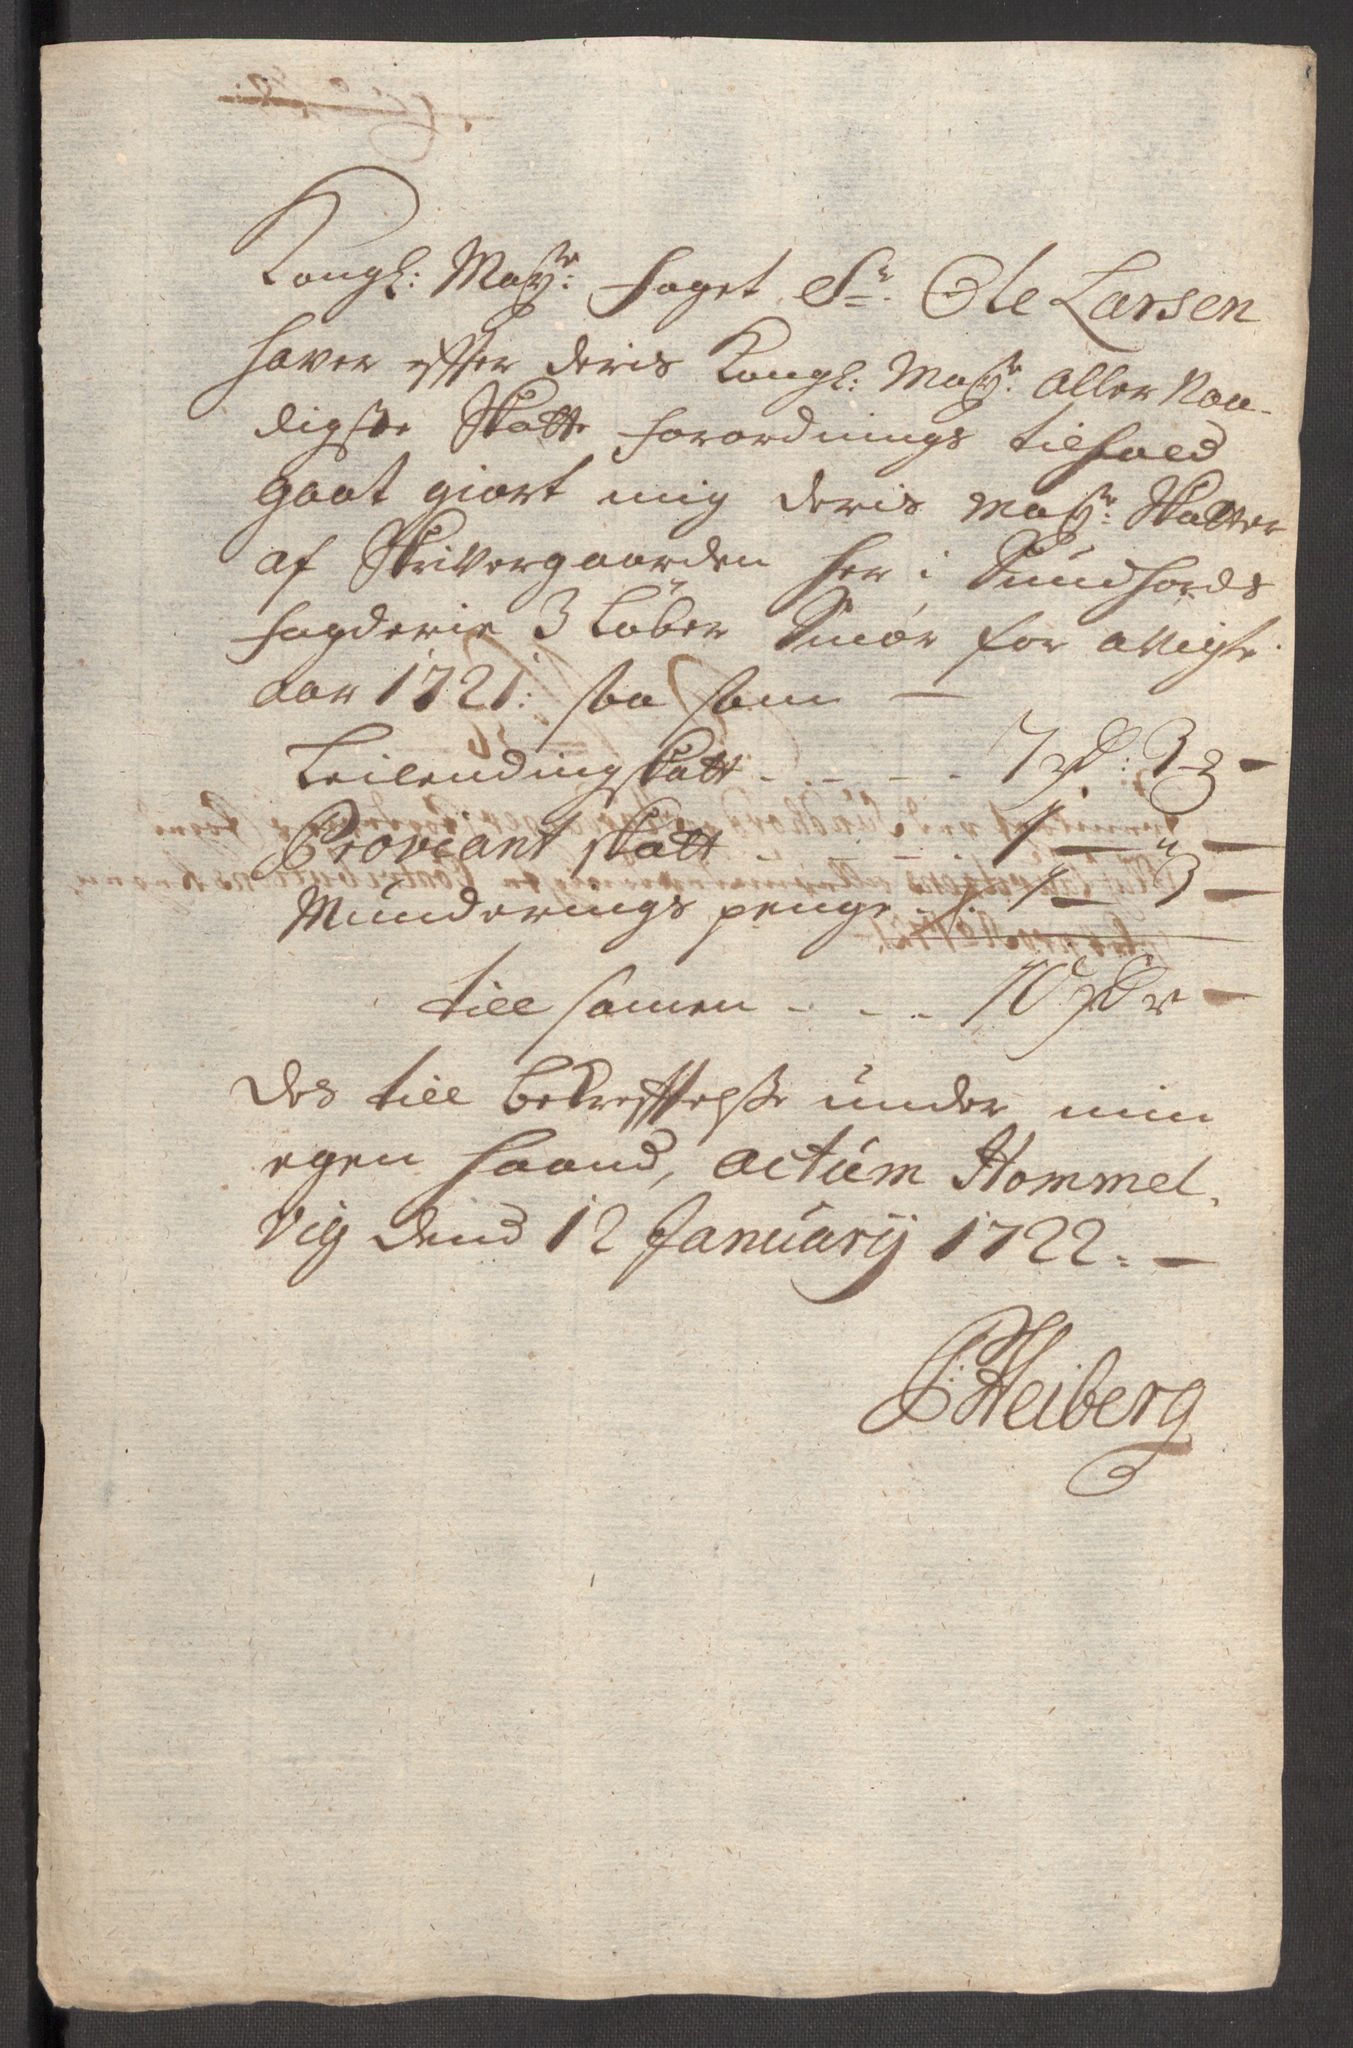 Kongl: May:tt foget Sr. Ole Larsen
haver effter deris Kongl: May:tt aller Naa-
digste Skatte forordnings tilhold
gaat giort mig deris May:tt Skatter
af Skrivergaarden her i Sundfiords
fogderie 3 Løber Smør for avigte
aar 1721: saa som —
Leilendingskatt - - - - - 7 rd: 3
Proviant skatt - - - 1 —
Munderings penge - - 1 — 3 —
till samen - - - 10 rdr —
des till bekrefftelsse under min
egen haand, actum Hommel-
vig dend 12 January 1722. —
Heiberg